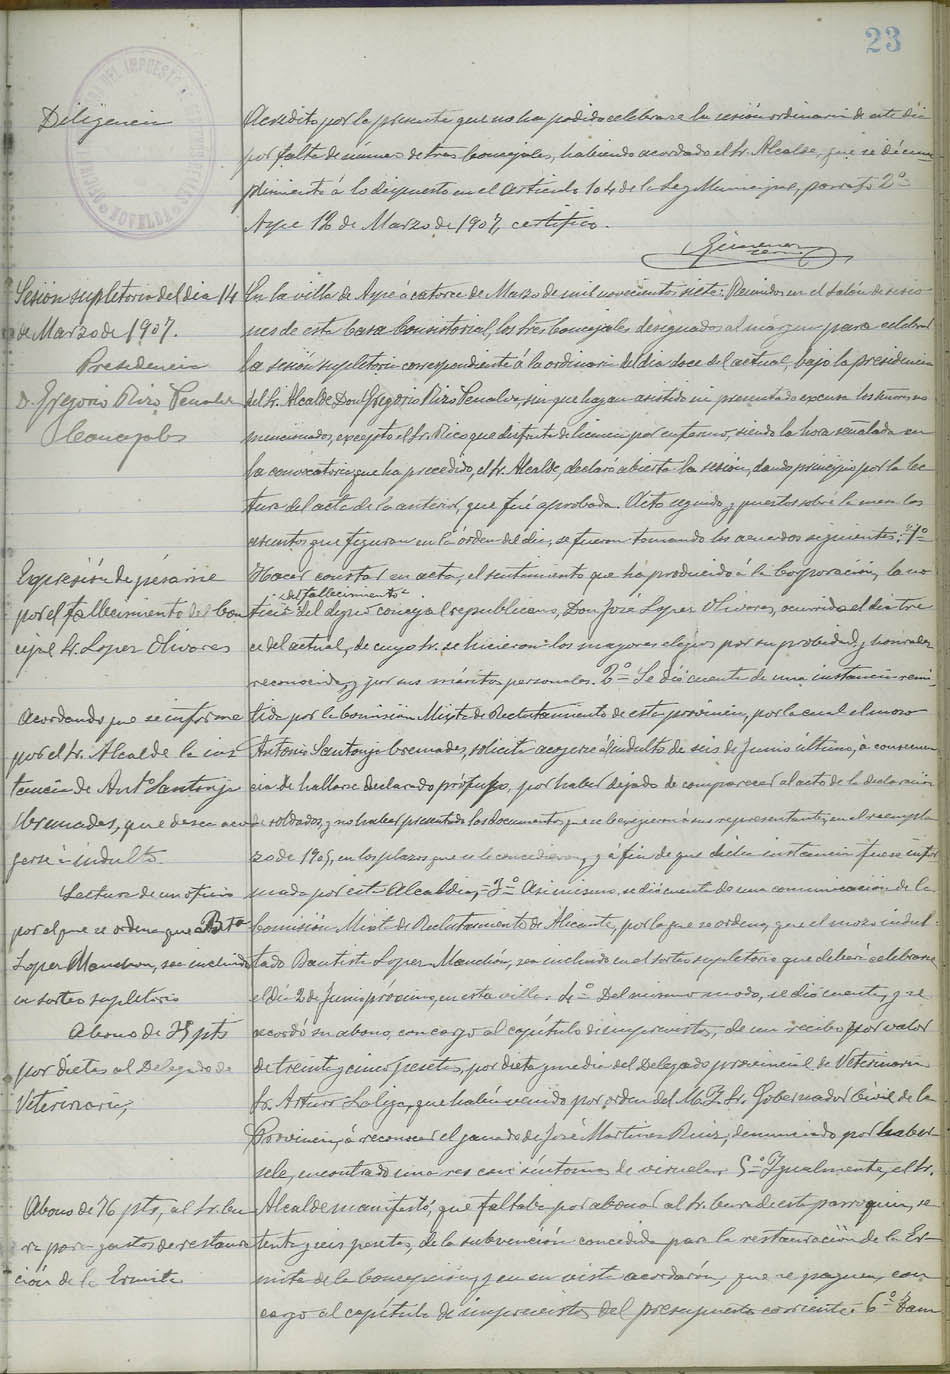 23
Diligencia
Acredito por la presente que no ha podido celebrarse la sesión ordinaria de este día
por falta de número de tres Concejales, habiendo acordado el Sr. Alcalde, que se dé cum-
plimiento á lo dispuesto en el artículo 104 de la Ley Municipal, párrafo 2º
Aspe 12 de Marzo de 1907, certifico.
Sesión supletoria del día 14
de Marzo de 1907.
Presidencia
D. Gregorio Rizo Penalva
Concejales
En la villa de Aspe á catorce de Marzo de mil novecientos siete: Reunidos en el salón de sesio-
nes de esta Casa Consistorial, los tres Concejales designados al márgen para celebrar
la sesión supletoria correspondiente á la ordinaria del día doce del actual, bajo la presidencia
del Sr. Alcalde Don Gregorio Rizo Penalva, sin que hayan asistido ni presentado excusa los señores no
mencionados, excepto el Sr. Rico que disfruta de licencia por enfermo, siendo la hora señalada en
la convocatoria que ha precedido, el Sr. Alcalde, declaró abierta la sesión, dando principio por la lec-
tura del acta de la anterior, que fué aprobada. Acto seguido y puestos sobre la mesa los
asuntos que figuran en la órden del día, se fueron tomando los acuerdos siguientes: 1º
Expresión de pésame
por el fallecimiento del Con
cejal Sr. Lopez Olivares
Hacer constar en acta, el sentimiento que ha producido á la Corporación, la no-
del fallecimiento
ticia del digno concejal republicano, Don José Lopez Olivares, ocurrido el día tre
ce del actual, de cuyo Sr. se hicieron los mayores elogios por su probidad y honradez
reconocida, y por sus méritos personales. 2º Se dió cuenta de una instancia remi-
Acordando que se informe
por el Sr. Alcalde la ins
tancia de Antº Santonja
Cremades, que desea aco
gerse á indulto.
tida por la Comisión Mixta de Reclutamiento de esta provincia, por la cual el mozo
Antonio Santonja Cremades, solicita acogerse á indulto de seis de Junio último, á consecuen
cia de hallarse declarado prófugo, por haber dejado de comparecer al acto de la declaración
de soldados, y no haber presentado los documentos que se le exigieron á sus representantes, en el reempla
zo de 190, en los plazos que se le concedieron, y á fin de que dicha instancia fuese infor
Lectura de un oficio
por el que se ordena que á Btª
Lopez Manchon, sea incluido
en sorteo supletorio
mada por esta Alcaldia. = 3º Asi mismo se dió cuenta de una comunicación de la
Comisión Mixta de Reclutamiento de Alicante, por la que se ordena, que el mozo indul-
tado Bautista Lopez Manchón, sea incluido en el sorteo supletorio que deberá celebrarse
el día 2 de Junio próximo, en esta villa. 4º Del mismo modo, se dió cuenta, y se
Abono de 35 pts
por dietas al Delegado de
Veterinaria,
acordó su abono, con cargo al capítulo de imprevistos, de un recibo por valor
de treinta y cinco pesetas, por dieta y media del Delegado provincial de Veterinaria
Sr. Arturo que había venido por orden del M. I. Sr. Gobernador Civil de la
Provincia, á reconocer el ganado de José Martinez Ruiz, denunciado por haber
sele, encontrado una res con síntomas de viruela. 5º Igualmente, el Sr.
Abono de 76 pts, al Sr. Cu
ra para gastos de restaura
ción de la Ermita
Alcalde manifestó, que faltaba por abonar al Sr. Cura de esta parroquia, se
tenta y seis pesetas, de la subvención concedida para la restauración de la Er-
mita de la Concepción, y en su vista acordarón, que se paguen, con
cargo al capítulo de imprevistos del presupuesto corriente. 6º Tam